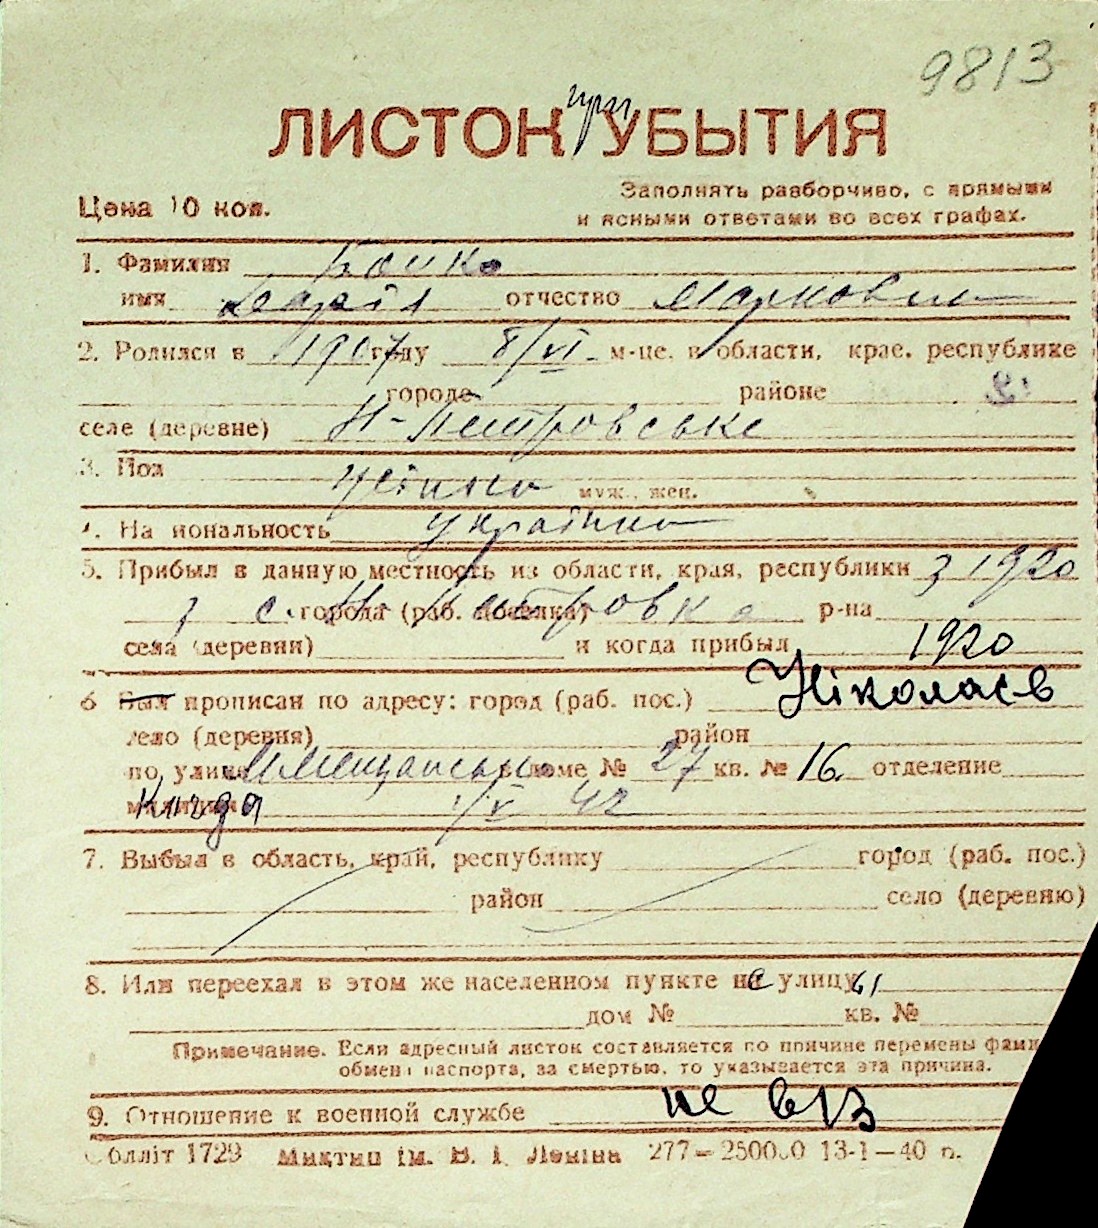 9813
ЛИСТОК при УБЫТИЯ
Цена 10 коп.
Заполнять разборчиво, с прямыми
и ясными ответами во всех графах.
1. Фамилия Бойко
имя Марія отчество Марковна
2. Родился в 1907 году 8/VI - м-це, в области, крае, республике
городе районе
селе (деревне) Н-Петровське
3. Пол жіноча муж., жен.
4. На иональность українка
5. Прибыл в данную местность из области, края, республики з 1920
з с. города (раб. поселка) Н. Петровка р-на
села (деревни) и когда прибыл 1920
6 Был прописан по адресу: город (раб. пос.) Ніколаєв
село (деревня) район
по улице в доме № 27 кв. № 16. отделение
милиции Когда 1/V 42
7. Выбыл в область, край, республику город (раб. пос.)
район село (деревню)
8. Или переехал в этом же населенном пункте на улицу
дом № кв. №
Примечание. Если адресный листок составляется по причине перемены фами
обмен паспорта, за смертью, то указывается эта причина.
9. Отношение к военной службе не в/з
Облліт 1729 Миктип ім. В. І. Леніна 277—250000 13-1—40 п.